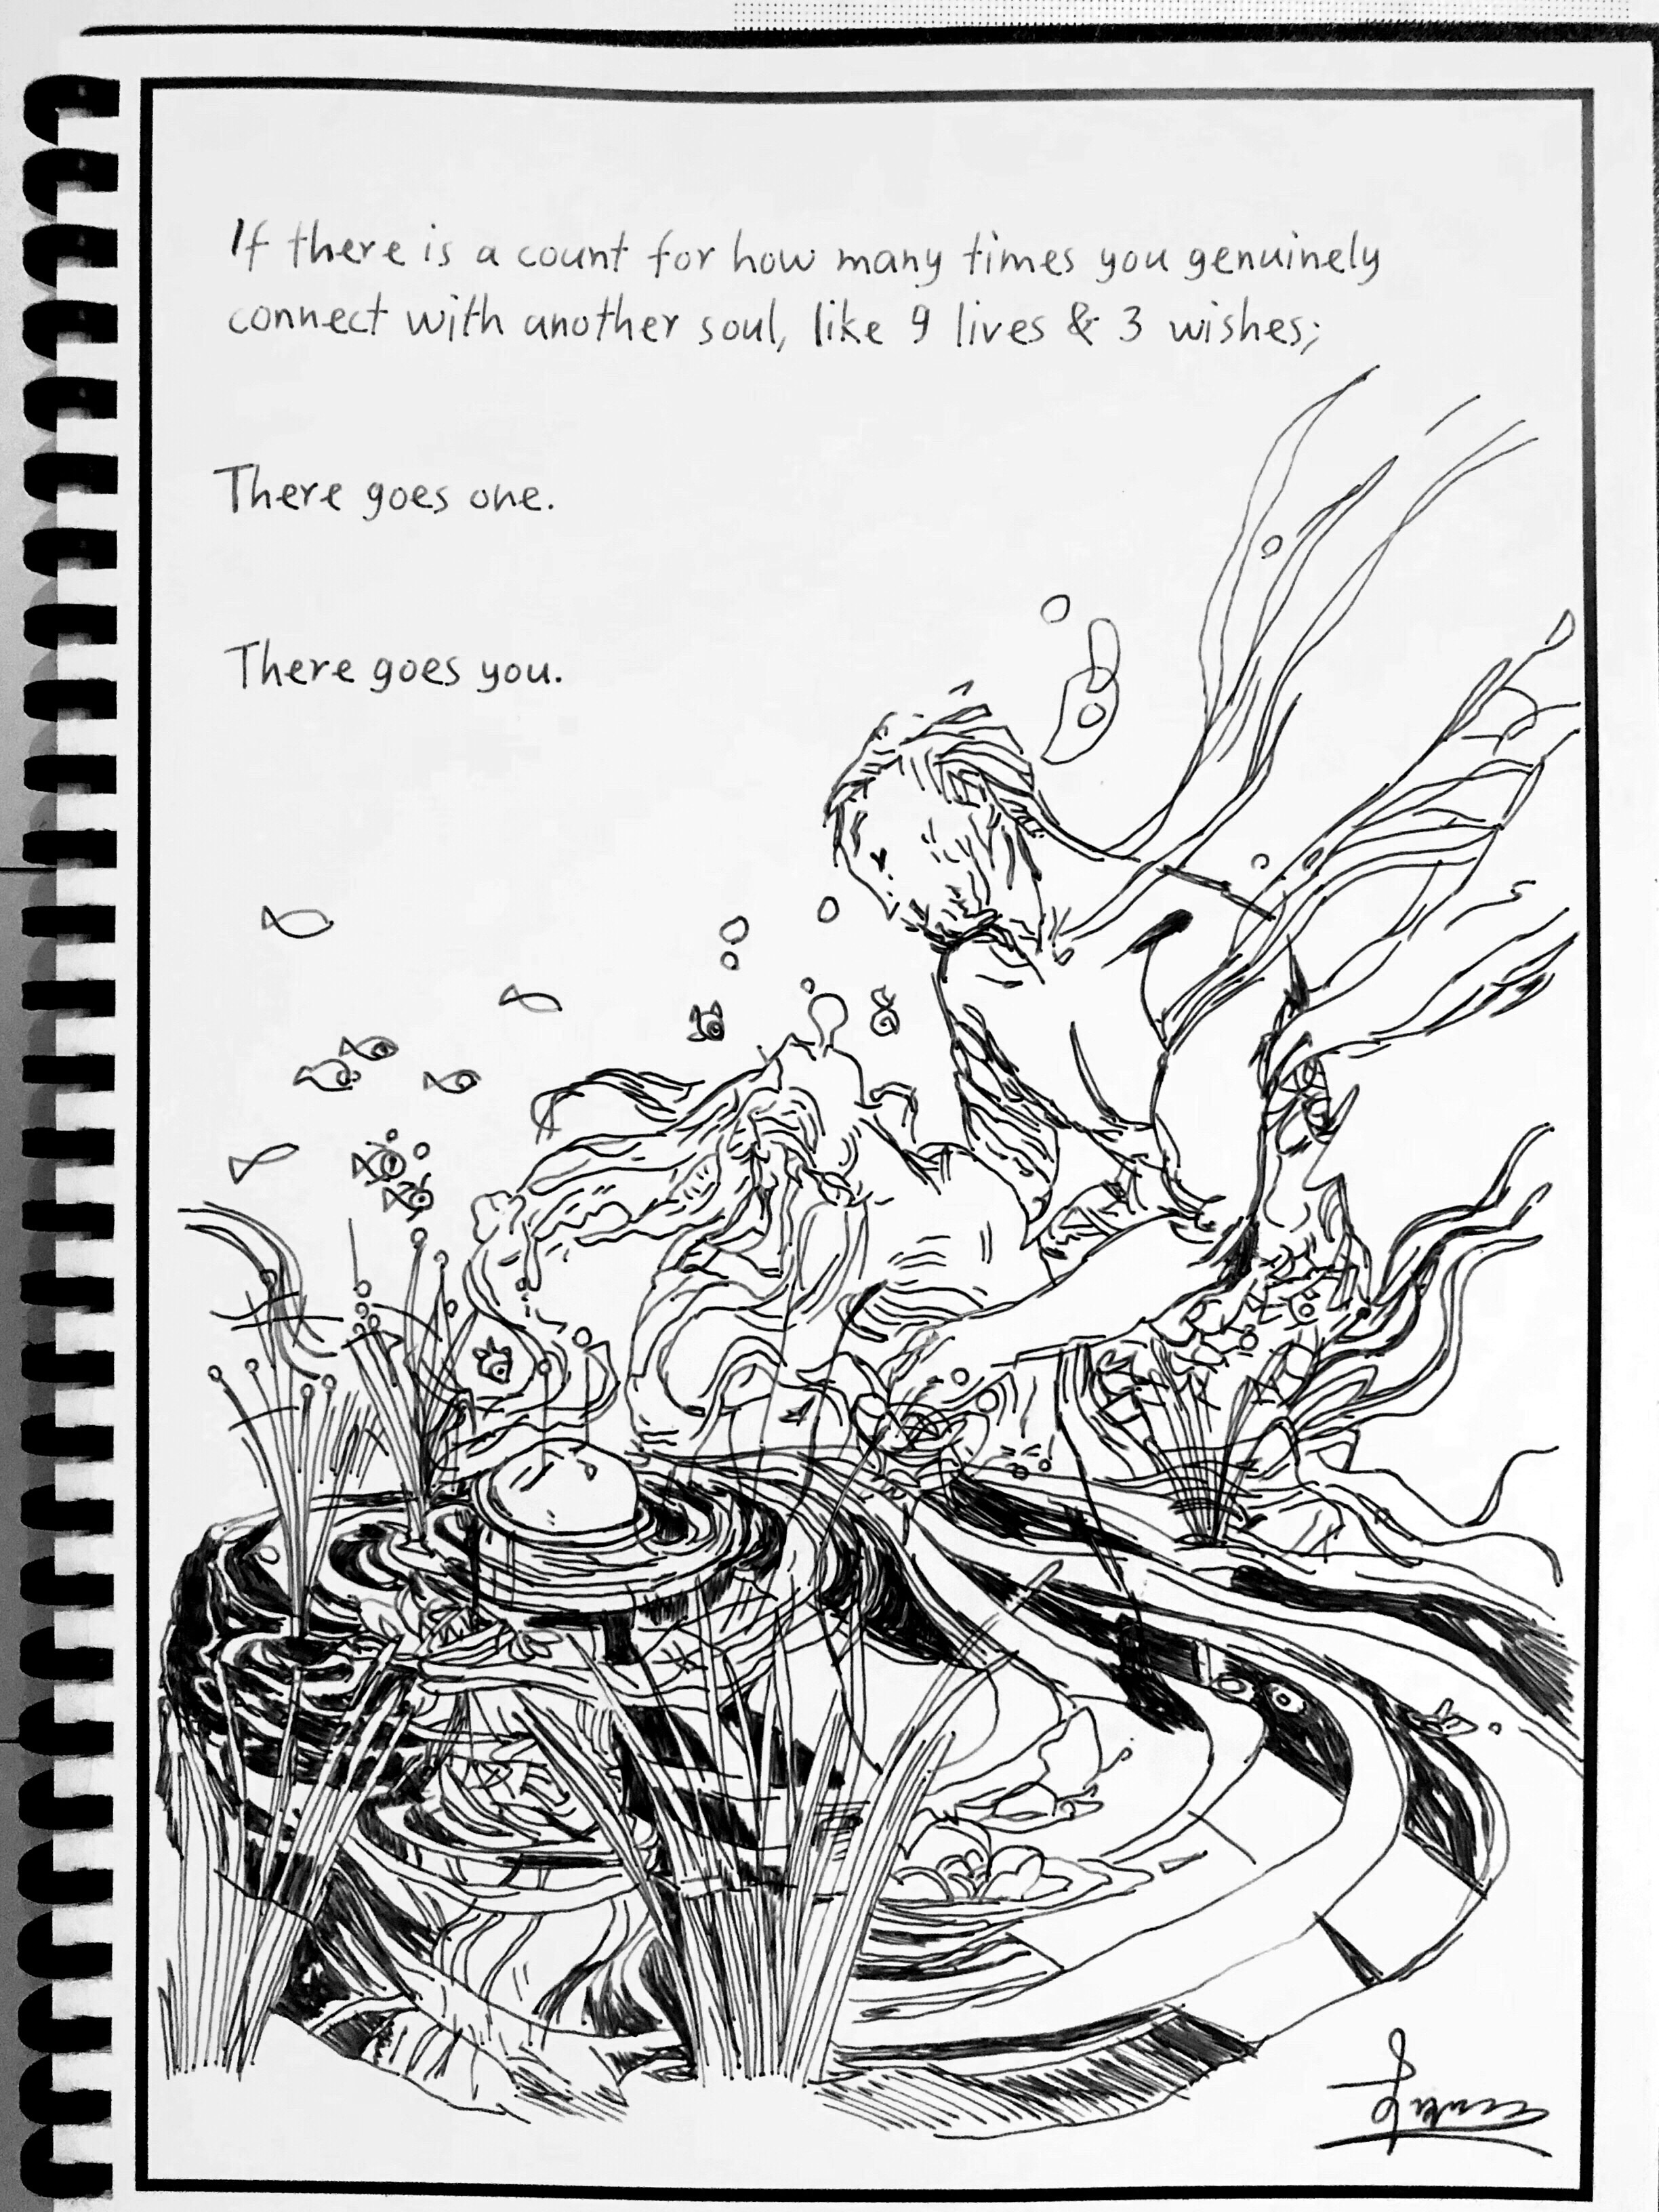 If there is a count for how many times you genuinely
connect with another soul, like 9 lives & 3 wishes;
There goes one.
There goes you.